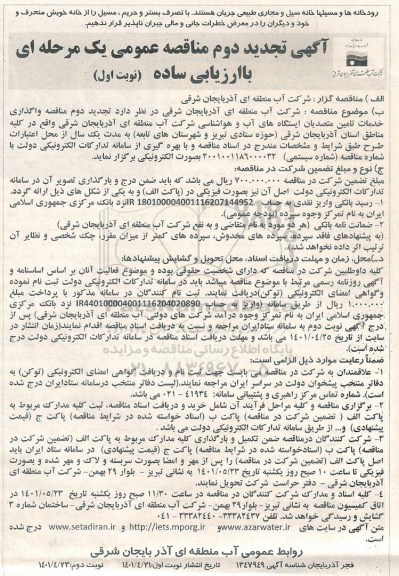 رودخانه ها و مسیلها خانه سیل و مجاری طبیعی جریان هستند. با تصرف بستر و حریم ، مسیل را از خانه خویش منحرف و
خود و دیگران را در معرض خطرات جانی و مالی جبران ناپذیر قرار ندهیم.
آگهی تجدید دوم مناقصه عمومی یک مرحله ای
باارزیابی ساده (نوبت اول)
الف ) مناقصه گزار : شرکت آب منطقه ای آذربایجان شرقی
ب) موضوع مناقصه : شرکت آب منطقه ای آذربایجان شرقی در نظر دارد تجدید دوم مناقصه واگذاری
خدمات تامین متصدیان ایستگاه های آب و هواشناسی شرکت آب منطقه ای آذربایجان شرقی واقع در کلیه
مناطق استان آذربایجان شرقی (حوزه ستادی تبریز و شهرستان های تابعه) به مدت یک سال از محل اعتبارات
طرح طبق شرایط و مشخصات مندرج در اسناد مناقصه و با بهره گیری از سامانه تدارکات الکترونیکی دولت با
شماره مناقصه (شماره سیستمی) ۲۰۰۱۰۰۱۱۸۶۰۰۰۰۳۲ بصورت الکترونیکی برگزار نماید.
ج) نوع و مبلغ تضمین شرکت در مناقصه:
مبلغ تضمین شرکت در مناقصه ۷۰۰.۰۰۰.۰۰۰ ریال می باشد که باید ضمن درج و بارگذاری تصویر آن در سامانه
تدارکات الکترونیکی دولت اصل آن نیز بصورت فیزیکی در (پاکت الف) و به یکی از شکل های ذیل ارائه گردد.
۱- رسید بانکی واریز نقدی به حساب IR 180100004001116207144952 نزد بانک مرکزی جمهوری اسلامی
ایران به نام تمرکز وجوه سپرده (بودجه عمومی).
۲- ضمانت نامه بانکی (هر دو مورد به نام متقاضی و به نفع شرکت آب منطقه ای آذربایجان شرقی)
به پیشنهادهای فاقد سپرده، سپرده های مخدوش، سپرده های کمتر از میزان مقرر، چک شخصی و نظایر آن
ترتیب اثر داده نخواهد شد.
د)محل، زمان و مهلت دریافت اسناد، محل تحویل و گشایش پیشنهادها:
کلیه داوطلبین شرکت در مناقصه که دارای شخصیت حقوقی بوده و موضوع فعالیت آنان بر اساس اساسنامه و
آگهی روزنامه رسمی مرتبط با موضوع مناقصه میباشد باید در سامانه تدارکات الکترونیکی دولت ثبت نام نموده
وگواهی امضای الکترونیکی (توکن)دریافت نمایند. ثبت نام کنندگان در سامانه مذکور با پرداخت مبلغ
۱.۰۰۰.۰۰۰ ریال از طریق سامانه (واریز به حساب IR440100004001116204020890 نزد بانک مرکزی
جمهوری اسلامی ایران به نام تمرکز وجوه درآمد شرکت های دولتی - آب منطقه ای آذربایجان شرقی) پس از
درج آگهی نوبت دوم به سامانه ستادایران مراجعه و نسبت به دریافت اسناد مناقصه اقدام نمایند(زمان انتشار در
سایت از تاریخ ۱۴۰۱/۰۴/۲۵ می باشد و مهلت دریافت اسناد مناقصه در سامانه تدارکات الکترونیکی دولت درج
شده است).
ضمنا رعایت موارد ذیل الزامی است:
۱- علاقمندان به شرکت در مناقصه می بایست جهت ثبت نام و دریافت گواهی امضای الکترونیکی (توکن) به
دفاتر منتخب پیشخوان دولت در سراسر ایران مراجعه نمایند.(لیست دفاتر منتخب درسامانه ستادایران درج شده
است)، شماره تماس مرکز راهبری و پشتیبانی سامانه: ۴۱۹۳۴-۰۲۱ می باشد.
۲- برگزاری مناقصه و کلیه مراحل فرآیند آن شامل خرید و دریافت اسناد مناقصه، ثبت کلیه مدارک مربوط به
پاکت الف ( تضمین شرکت در مناقصه) پاکت ب (اسناد خواسته شده در شرایط مناقصه) پاکت ج (قیمت
پیشنهادی) و... از طریق سامانه تدارکات الکترونیکی دولت می باشد .
۳- شرکت کنندگان درمناقصه ضمن تکمیل و بارگذاری کلیه مدارک مربوط به پاکت الف (تضمین شرکت در
مناقصه) پاکت ب (اسنادخواسته شده در شرایط مناقصه) پاکت ج (قیمت پیشنهادی) در سامانه ستاد ایران باید
اصل پاکت الف (تضمین شرکت در مناقصه) را پس از مهر و امضا بصورت سربسته و لاک و مهر شده و بصورت
فیزیکی تا ساعت ۱۰ صبح روز یکشنبه تاریخ ۱۴۰۱/۰۵/۲۳ به نشانی تبریز - بلوار ۲۹ بهمن- شرکت آب منطقه ای
آذربایجان شرقی - دفتر حراست شرکت تحویل نمایند.
۴- کلیه اسناد و مدارک شرکت کنندگان در مناقصه در ساعت ۱۱/۳۰ صبح روز یکشنبه تاریخ ۱۴۰۱/۰۵/۲۳ در
اتاق کمیسیون مناقصه به نشانی تبریز-بلوار۲۹ بهمن- شرکت آب منطقه ای آذربایجان شرقی- ساختمان شماره ۳
گشایش و رسیدگی خواهد شد. تلفن ۳۳۳۸۲۴۳۷- ۳۳۳۸۲۴۴۰-۰۴۱
متن آگهی در سایت های www.azarwater.ir و http://iets.mporg.ir و www.setadiran.ir درج شده
است.
روابط عمومی آب منطقه ای آذر بایجان شرقی
فجر آذربایجان شناسه آگهی ۱۳۴۷۹۴۹ تاریخ انتشار نوبت اول:۱۴۰۱/۴/۲۱ نوبت دوم:۱۴۰۱/۴/۲۳